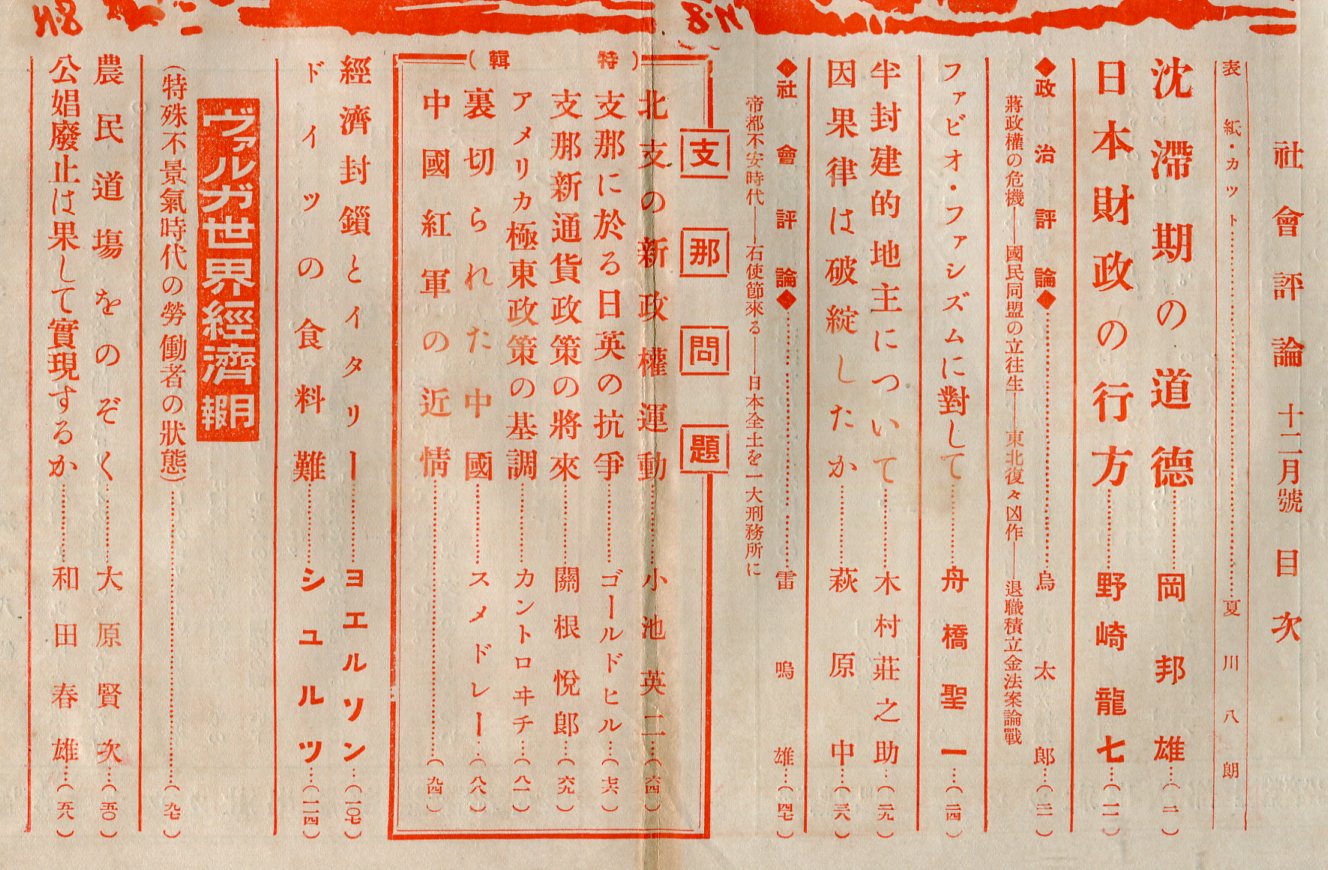 社會評論 十二月號 目次
表紙・カット………夏川八朗
沈滯期の道德………岡邦雄…(二)
日本財政の行方………野崎龍七…(一一)
◆政治評論◆………烏太郎…(二一)
蔣政權の危機――國民同盟の立往生――東北復々凶作――退職積立金法案論戰
ファビオ・ファシズムに對して………舟橋聖一…(二四)
半封建的地主について………木村莊之助…(二九)
因果律は破綻したか………萩原中…(三八)
◆社會評論◆………雷鳴雄…(四七)
帝都不安時代――石使節來る――日本全土を一大刑務所に
支那問題
(特輯)
北支の新政權運動………小池英二…(六四)
支那に於る日英の抗爭………ゴールドヒル…(七六)
支那新通貨政策の將來………關根悅郎…(六九)
アメリカ極東政策の基調………カントロヰチ…(八一)
裏切られた中國………スメドレー…(八八)
中國紅軍の近情………(九四)
經濟封鎖とイタリー………ヨエルソン…(一〇七)
ドイツの食料難………シュルツ…(一一四)
ヴァルガ世界經濟月報
(特殊不景氣時代の勞働者の狀態)………(九七)
農民道場をのぞく………大原賢次…(五〇)
公娼廢止は果して實現するか………和田春雄…(五八)